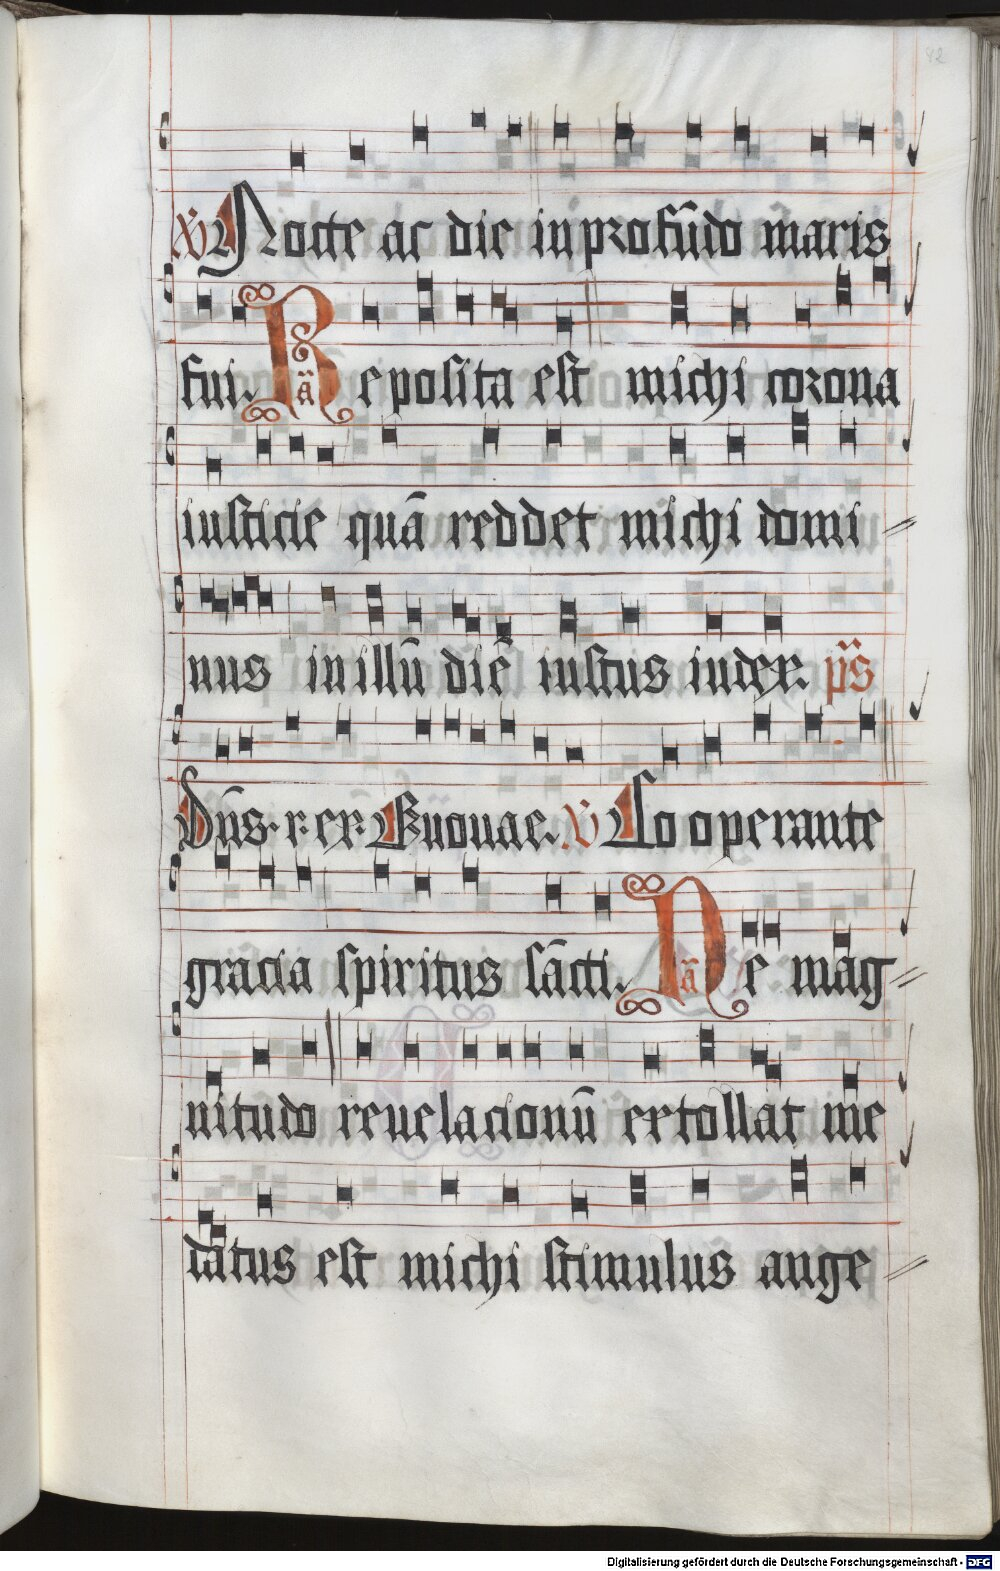 82
℣ Nocte ac die in profũdo maris
fui. Ã Reposita est michi corona
iusticie quã reddet michi domi-
nus in illũ diẽ iustus iudex. ps̃
Dñs. r. ex. Euouae. ℣ Cooperante
gracia spiritus sãcti. ã Ne mag-
nitudo reuelacionũ extollat me
datus est michi stimulus ange-
Digitalisierung gefördert durch die Deutsche Forschungsgemeinschaft - DFG